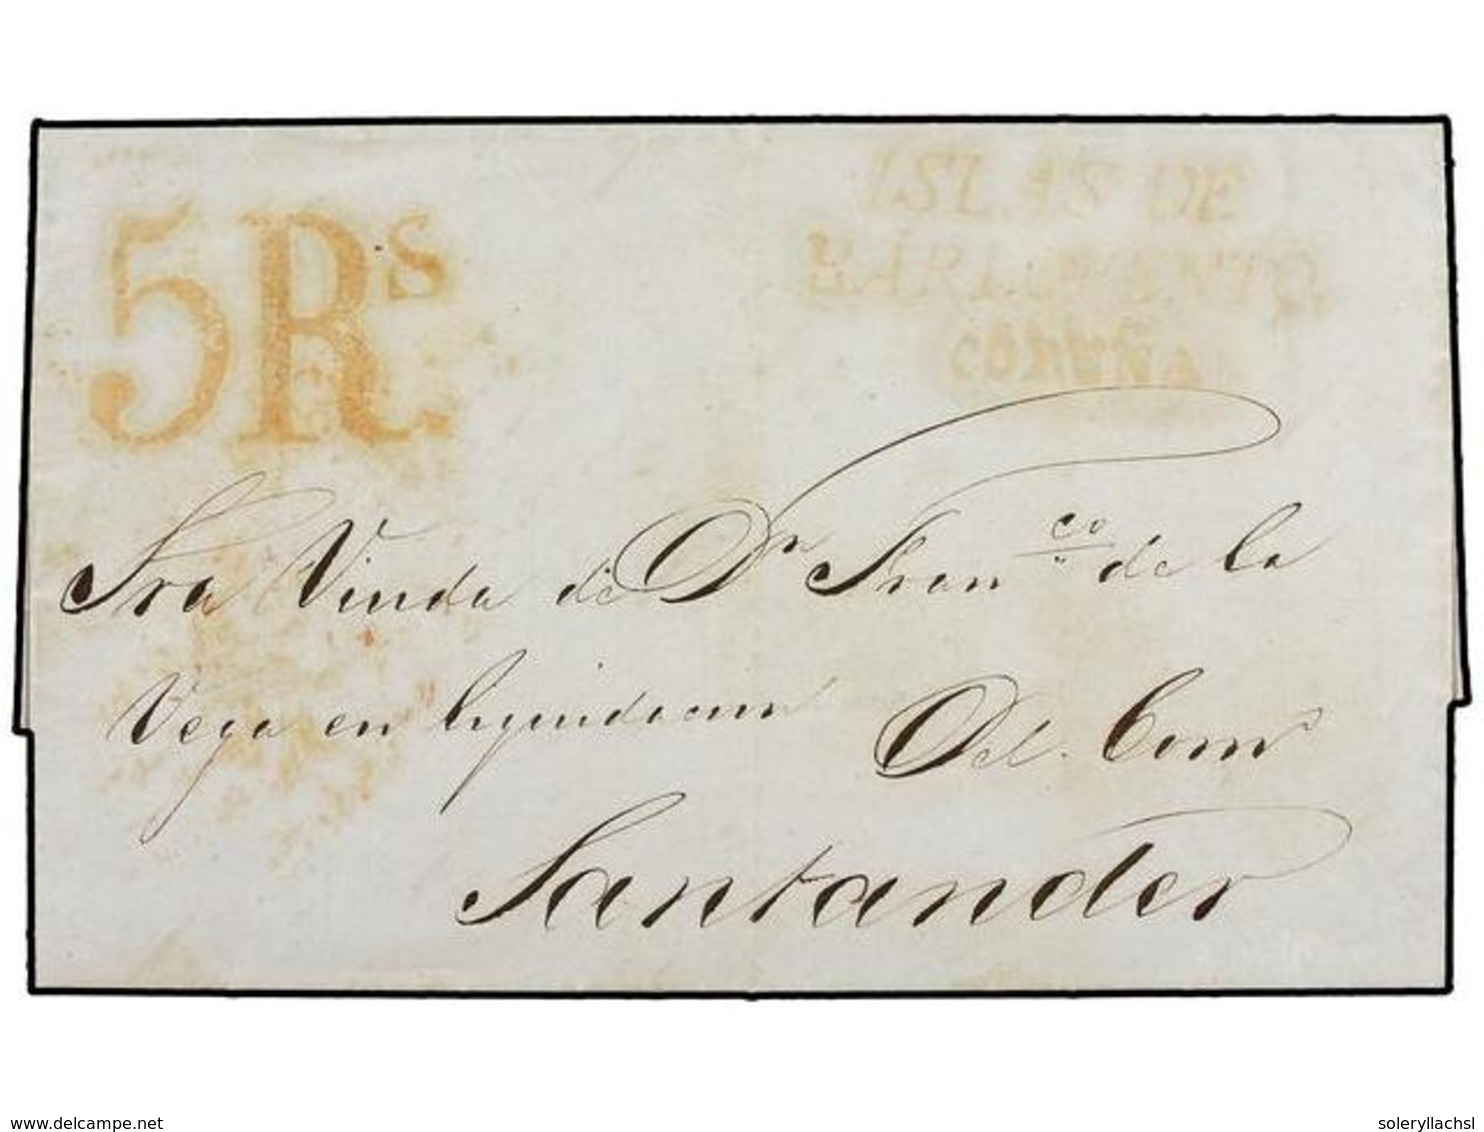 5Rs.
ISLAS DE
BARLOVENTO.
CORUÑA.
Sra Viuda de Dn Franco de la
Vega en liquidacion Del Como
Santander
www.delcampe.net
soleryllachsl